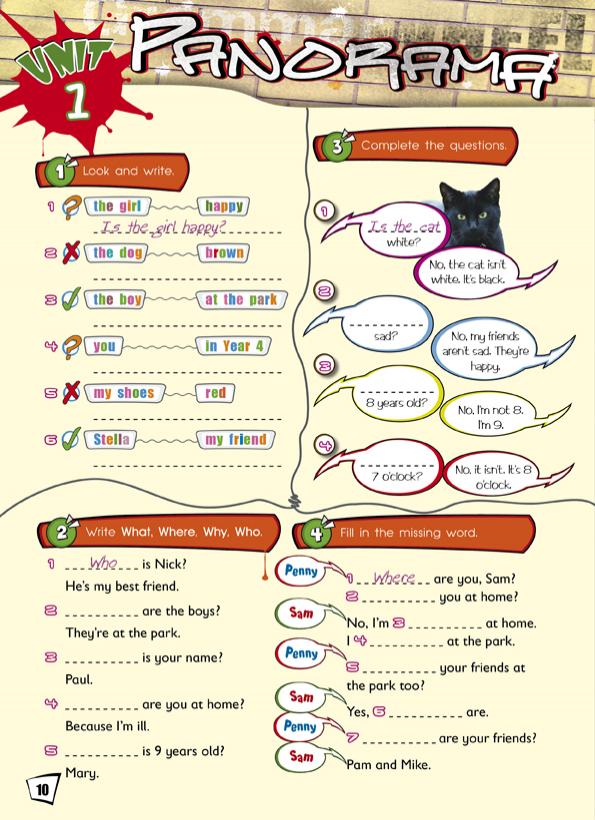 Grammar
UNIT
1
PANORAMA
1 Look and write.
1 ? the girl happy
Is the girl happy?
2 ✗ the dog brown
3 ✓ the boy at the park
4 ? you in Year 4
5 ✗ my shoes red
6 ✓ Stella my friend
3 Complete the questions.
1
Is the cat
white?
No, the cat isn't
white. It's black.
2
_________
sad?
No, my friends
aren't sad. They're
happy.
3
_________
8 years old?
No, I'm not 8.
I'm 9.
4
_________
7 o'clock?
No, it isn't. It's 8
o'clock.
2 Write What, Where, Why, Who.
1 Who is Nick?
He's my best friend.
2 _________ are the boys?
They're at the park.
3 _________ is your name?
Paul.
4 _________ are you at home?
Because I'm ill.
5 _________ is 9 years old?
Mary.
4 Fill in the missing word.
Penny 1 Where are you, Sam?
2 _________ you at home?
Sam No, I'm 3 _________ at home.
I 4 _________ at the park.
Penny 5 _________ your friends at
the park too?
Sam Yes, 6 _________ are.
Penny 7 _________ are your friends?
Sam Pam and Mike.
10